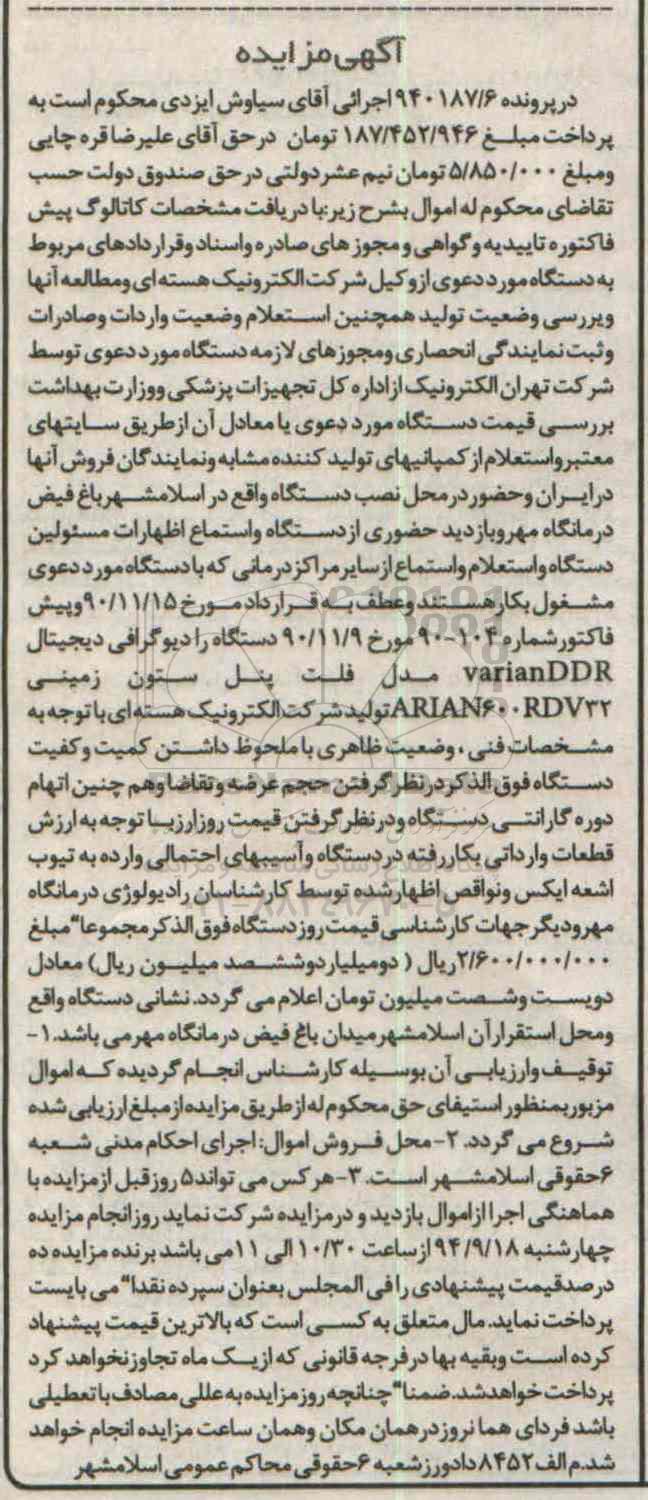 آگهی مزایده
در پرونده ۹۴۰۱۸۷/۶ اجرائی آقای سیاوش ایزدی محکوم است به
پرداخت مبلغ ۱۸۷/۴۵۲/۹۴۶ تومان در حق آقای علیرضا قره چایی
ومبلغ ۵/۸۵۰/۰۰۰ تومان نیم عشر دولتی در حق صندوق دولت حسب
تقاضای محکوم له اموال بشرح زیر:با دریافت مشخصات کاتالوگ پیش
فاکتوره تاییدیه و گواهی و مجوز های صادره واسناد وقراردادهای مربوط
به دستگاه مورد دعوی از وکیل شرکت الکترونیک هسته ای ومطالعه آنها
وبررسی وضعیت تولید همچنین استعلام وضعیت واردات وصادرات
وثبت نمایندگی انحصاری ومجوزهای لازمه دستگاه مورد دعوی توسط
شرکت تهران الکترونیک از اداره کل تجهیزات پزشکی ووزارت بهداشت
بررسی قیمت دستگاه مورد دعوی یا معادل آن از طریق سایتهای
معتبرواستعلام از کمپانیهای تولید کننده مشابه ونمایندگان فروش آنها
در ایران وحضوردرمحل نصب دستگاه واقع در اسلامشهرباغ فیض
درمانگاه مهروبازدید حضوری از دستگاه واستماع اظهارات مسئولین
دستگاه واستعلام واستماع از سایر مراکز درمانی که با دستگاه مورد دعوی
مشغول بکارهستند وعطف به قرارداد مورخ ۹۰/۱۱/۱۵ وپیش
فاکتور شماره ۱۰۴-۹۰ مورخ ۹۰/۱۱/۹ دستگاه رادیوگرافی دیجیتال
varianDDR مدل فلت پنل ستون زمینی
ARIAN۶۰۰RDV۳۲ تولید شرکت الکترونیک هسته ای با توجه به
مشخصات فنی ، وضعیت ظاهری با ملحوظ داشتن کمیت وکفیت
دستگاه فوق الذکر در نظر گرفتن حجم عرضه وتقاضا وهم چنین اتهام
دوره گارانتی دستگاه ودر نظر گرفتن قیمت روزارزبا توجه به ارزش
قطعات وارداتی بکاررفته در دستگاه وآسیبهای احتمالی وارده به تیوب
اشعه ایکس ونواقص اظهارشده توسط کارشناسان رادیولوژی درمانگاه
مهرودیگر جهات کارشناسی قیمت روز دستگاه فوق الذکر مجموعا“ مبلغ
۲/۶۰۰/۰۰۰/۰۰۰ریال ( دومیلیاردوششصد میلیون ریال) معادل
دویست وشصت میلیون تومان اعلام می گردد. نشانی دستگاه واقع
ومحل استقرار آن اسلامشهر میدان باغ فیض درمانگاه مهر می باشد. ۱-
توقیف وارزیابی آن بوسیله کارشناس انجام گردیده که اموال
مزبوربمنظور استیفای حق محکوم له از طریق مزایده از مبلغ ارزیابی شده
شروع می گردد. ۲- محل فروش اموال: اجرای احکام مدنی شعبه
۶حقوقی اسلامشهر است. ۳- هر کس می تواند۵ روز قبل ازمزایده با
هماهنگی اجرا از اموال بازدید و در مزایده شرکت نماید روز انجام مزایده
چهارشنبه ۹۴/۹/۱۸ ازساعت ۱۰/۳۰ الی ۱۱می باشد برنده مزایده ده
درصدقیمت پیشنهادی را فی المجلس بعنوان سپرده نقدا“ می بایست
پرداخت نماید. مال متعلق به کسی است که بالاترین قیمت پیشنهاد
کرده است وبقیه بها درفرجه قانونی که از یک ماه تجاوزنخواهد کرد
پرداخت خواهدشد. ضمنا“ چنانچه روزمزایده به عللی مصادف با تعطیلی
باشد فردای همانروز در همان مکان وهمان ساعت مزایده انجام خواهد
شد.م الف ۸۴۵۲ دادورز شعبه ۶حقوقی محاکم عمومی اسلامشهر